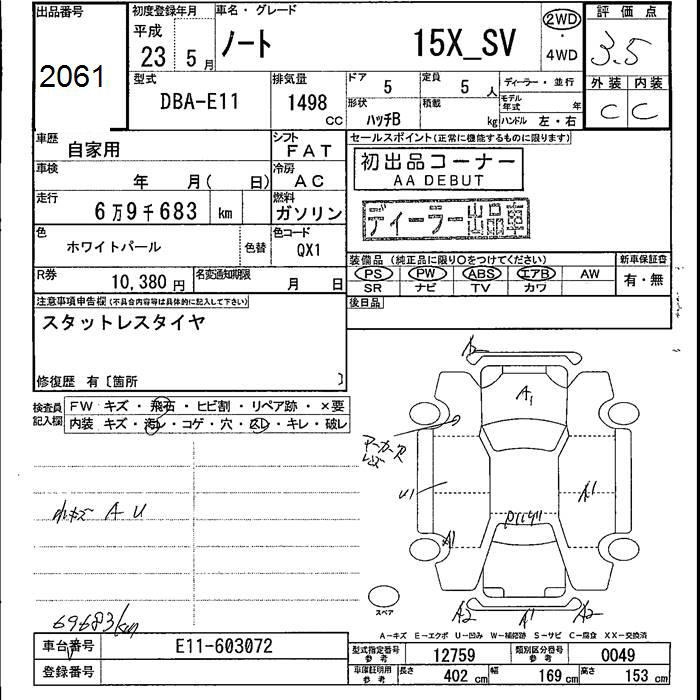 出品番号 初度登録年月 車名・グレード 2WD 評価点
2061 平成 23 5月 ノート 15X_SV ・ 4WD 3.5
型式 排気量 ドア 定員 ディーラー・並行 外装 内装
DBA-E11 1498 CC 5 5人 モデル年式 年 C C
形状 ハッチB 積載 kg ハンドル 左・右
車歴 自家用 シフト FAT セールスポイント(正常に機能するものに限ります)
車検 年 月( 日) 冷房 AC 初出品コーナー
AA DEBUT
走行 6万9千683 km 燃料 ガソリン ディーラー出品車
色 ホワイトパール 色替 色コード QX1
装備品(純正品に限り○をつけてください) 新車保証書
R券 10,380円 名変通知期限 月 日 PS PW ABS エアB AW 有・無
SR ナビ TV カワ
注意事項申告欄(不具合内容等は具体的に記入して下さい) 後日品
スタットレスタイヤ
修復歴 有〔箇所 〕
検査員記入欄 FW キズ・飛石・ヒビ割・リペア跡・×要
内装 キズ・汚レ・コゲ・穴・スレ・キレ・破レ
A2
A1
U1 A1
A1
A U
スペア
A2 A1 A2
69683km
A-キズ E-エクボ U-凹み W-補修跡 S-サビ C-腐食 XX-交換済
車台番号 E11-603072 型式指定番号 参考 12759 類別区分番号 参考 0049
登録番号 車庫証明用 参考 長さ 402cm 幅 169cm 高さ 153cm